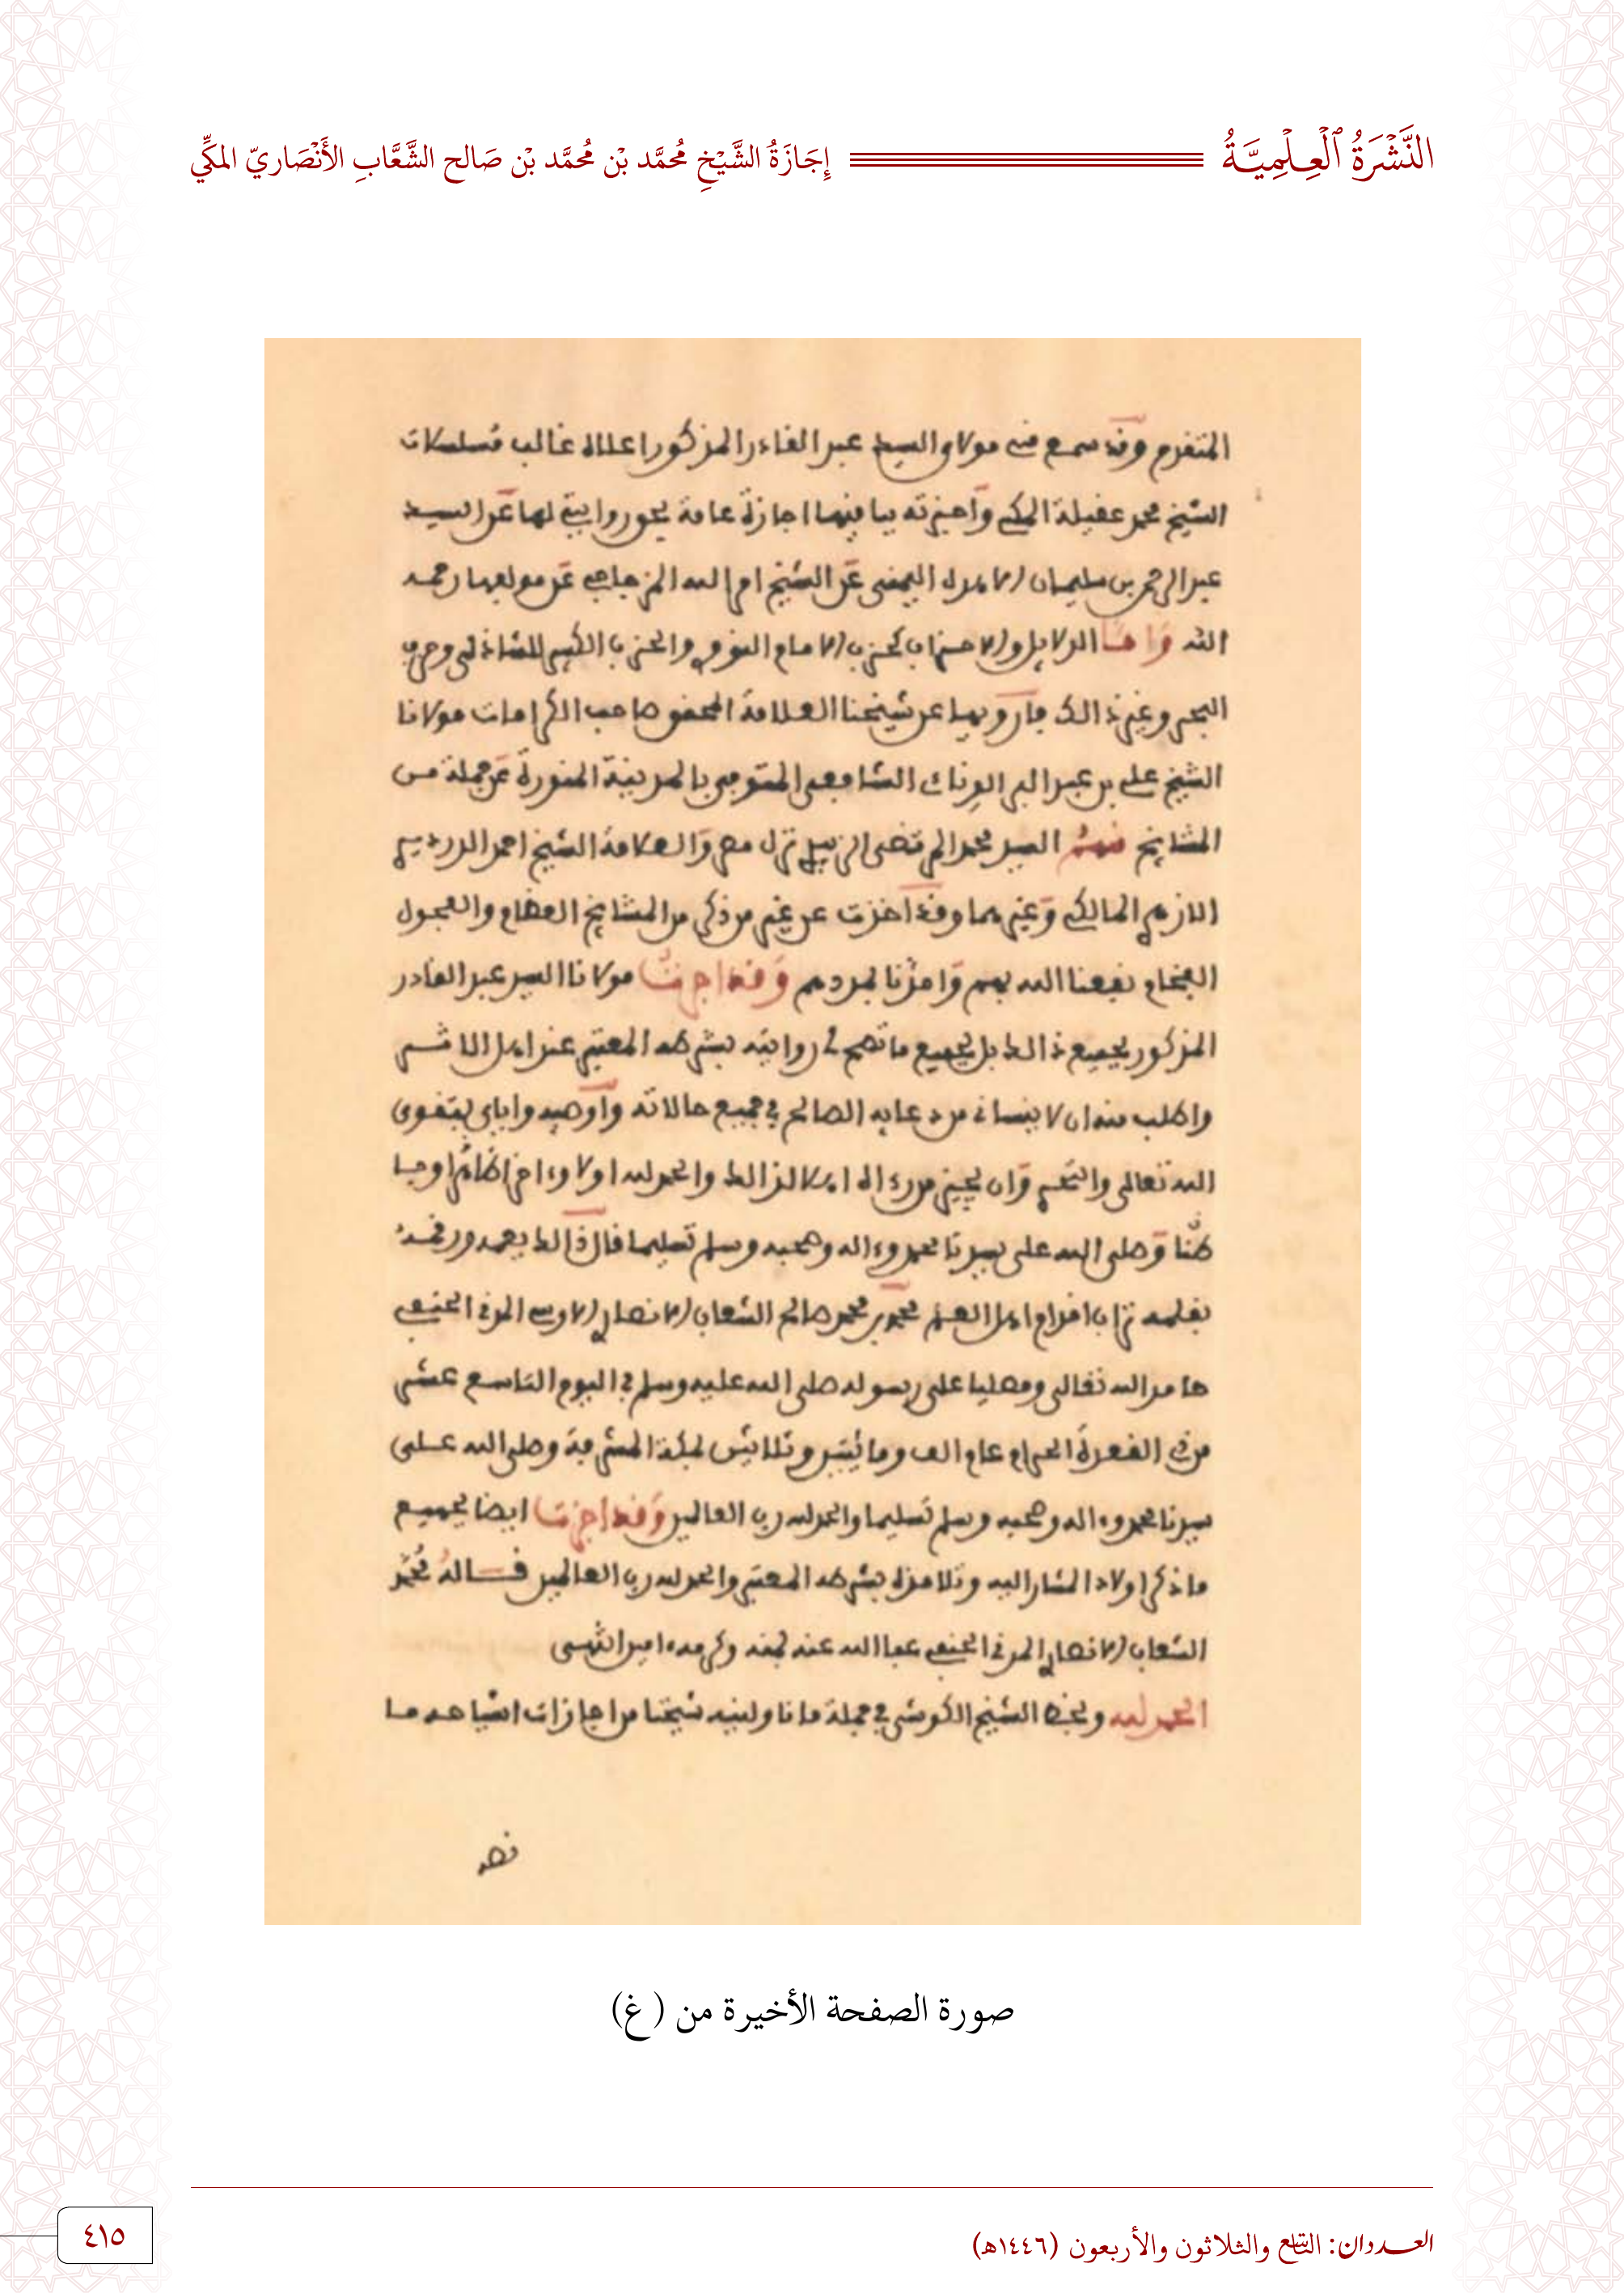 النَّشْرَةُ ٱلْعِلْمِيَّةُ
إِجَازَةُ الشَّيْخِ مُحَمَّد بْن مُحَمَّد بْن صَالح الشَّعَّابِ الأَنْصَاريّ المكِّي
المتقدم وقد سمع مني مولاي السيد عبد القادر المذكور اعلاه غالب مسلسلات
الشيخ محمد عقيلة المكي وَأجزته بباقيها اجازة عامة بحق روايتي لها عَن السيد
عبد الرحمن بن سليمان الاهدل اليمني عَن الشيخ امر الله المزجاجي عَن مولفها رحمه
الله وَاما الدلايل والاحزاب كحزب الامام النووي والحزب الكبير للشاذلي وحزب
البحر وغير ذالك فأرويها عن شيخنا العلامة المحقق صاحب الكرامات مولانا
الشيخ علي بن عبد البر الونائ الشافعي المتوفى بالمدينة المنورة عَن جملة من
المشايخ فمنهم السيد محمد المرتضى الزبيدي نزل مصر وَالعلامة الشيخ احمد الدردير
الازهري المالكي وَغيرهما وقد اخذت عن غير من ذكر من المشايخ العظام والفحول
الفخام نفعنا الله بهم وَامدنا بمددهم وَقد اجزت مولانا السيد عبد القادر
المذكور بجميع ذالك بل بجميع ما تصح لي روايته بشرطه المعتبر عند اهل الاثر
واطلب منه ان لا ينساني من دعايه الصالح في جميع حالاته وأوصيه واياي بتقوى
الله تعالى وَان يجيز من رءاه اهلا لذالك والحمد لله اولا وءاخرا ظاهرا وبا
طنًا وَصلى الله على سيدنا محمد وءاله وصحبه وسلم تسليما قال ذالك بفمه ورقمه
بقلمه تراب اقدام اهل العلم محمد بن محمد صالح الشعاب الانصاري الاوسي المدني الحنفي
حامد الله تعالى ومصليا على رسوله صلى الله عليه وسلم في اليوم التاسع عشر
من ذي القعدة الحرام عام الف ومايتين وثلاثين بمكة المشرفة وصلى الله على
سيدنا محمد وءاله وصحبه وسلم تسليما والحمد لله رب العالمين وَقد اجزت ايضا بجميع
ما ذكر اولاد المشار اليه وتلامذه بشرطه المعتبر والحمد لله رب العالمين قاله محمد
الشعاب الانصاري المدني الحنفي عفا الله عنه بمنه وكرمه امين انتهى
الحمد لله وبخط الشيخ الكوشي في جملة ما ناولنيه شيخنا من اجازات اشياخه ما
نصه
صورة الصفحة الأخيرة من (غ)
العددان: التاسع والثلاثون والأربعون (١٤٤٦هـ)
٤١٥